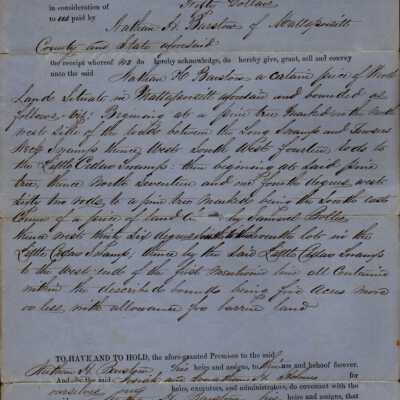 in consideration of Sixty Dollars
to us paid by
Nathan H. Barstow of Mattapoisett
County and State aforesaid
the receipt whereof we do hereby acknowledge, do hereby give, grant, sell and convey
unto the said
Nathan H Barstow a certain piece of
Land Situate in Mattapoisett aforesaid and bounded as
follows Viz; Beginning at a pine tree Marked on the North
west side of the between the Long Swamp and
Neck Swamp thence West South West fourteen rods to
the Little Cedar Swamp: then begining at said pine
tree, thence North Seventeen and one fourth degrees west
Sixty two rods, to a pine tree Marked being the South east
Corner of a piece of land by Samuel
thence west thirty Six degrees lot in the
Little Cedar Swamp; thence by the Said Little Cedar Swamp
to the West end of the first Mentioned line all Contained
within the described bounds being five Acres more
or less, with allowance for barren land
TO HAVE AND TO HOLD, the afore-granted Premises to the said
Nathan H. Barstow, his heirs and assigns, to his use and behoof forever.
And the said and Jonathan H for
ourselves our heirs, executors, and administrators, do covenant with the
heirs and assigns, that